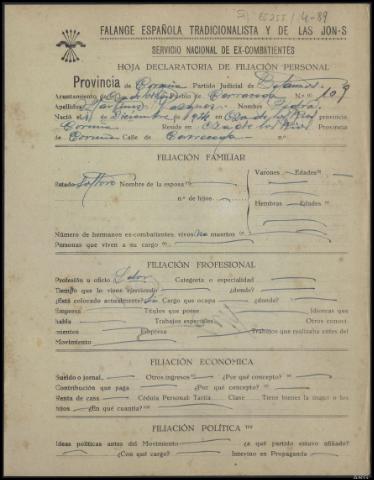 FALANGE ESPAÑOLA TRADICIONALISTA Y DE LAS JON-S
SERVICIO NACIONAL DE EX-COMBATIENTES
HOJA DECLARATORIA DE FILIACIÓN PERSONAL
Provincia de Coruña Partido Judicial de Betanzos
Ayuntamiento de Pueblo de N.º 109
Apellidos Martínez Vázquez Nombre
Nació el de Diciembre de en provincia
Coruña Reside en provincia
de Coruña Calle de n.º
FILIACIÓN FAMILIAR
Estado Soltero Nombre de la esposa
n.º de hijos
Varones Edades
Hembras Edades
Número de hermanos ex-combatientes, vivos no muertos
Personas que viven a su cargo
FILIACIÓN PROFESIONAL
Profesión u oficio Labor Categoría o especialidad
Tiempo que lo viene ejerciendo ¿dónde?
¿Está colocado actualmente? Cargo que ocupa ¿dónde?
Empresa Títulos que posee Idiomas que
habla Trabajos especiales Otros conoci-
mientos Empresa Trabajos que realizaba antes del
Movimiento
FILIACIÓN ECONÓMICA
Sueldo o jornal Otros ingresos ¿Por qué concepto?
Contribución que paga ¿Por qué concepto?
Renta de casa Cédula Personal Tarifa Clase Tiene bienes la mujer o los
hijos ¿En qué cuantía?
FILIACIÓN POLÍTICA
Ideas políticas antes del Movimiento ¿a qué partido estuvo afiliado?
¿Con qué cargo? Intervino en Propaganda